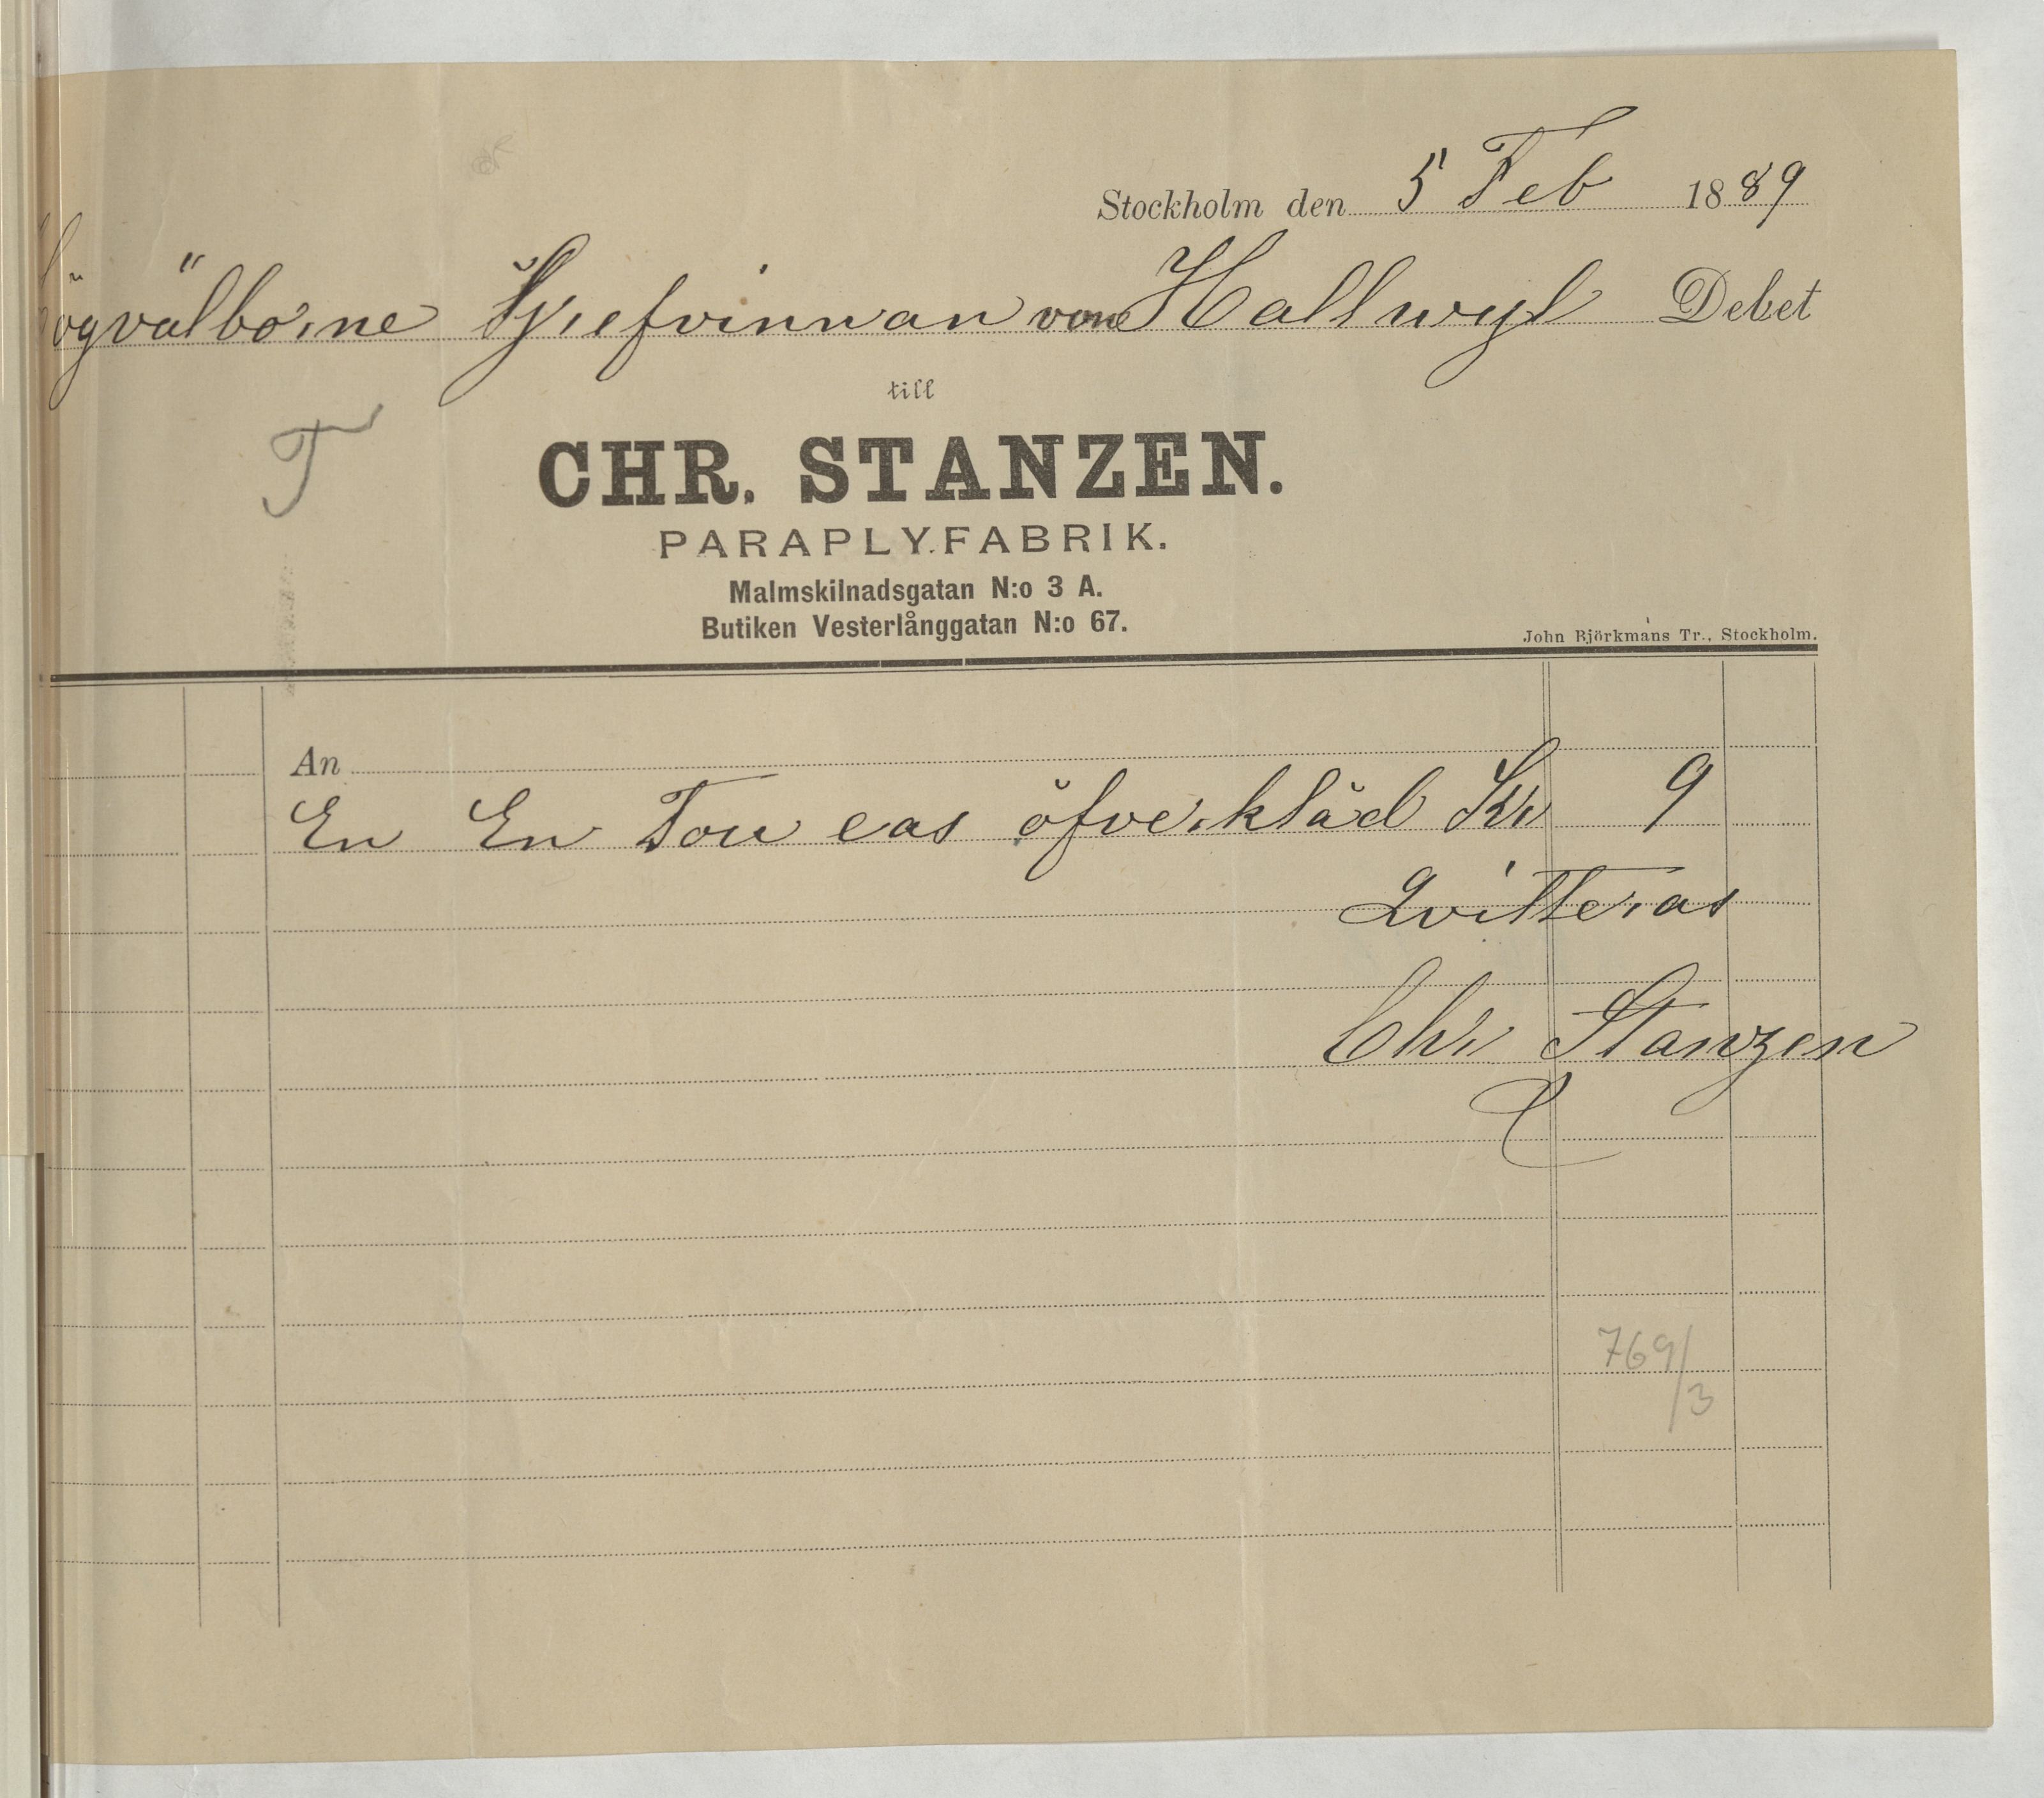 Stockholm den 5 Feb 1889
Högvälborne Grefvinnan von Hallwyl Debet
till
CHR. STANZEN.
T
PARAPLY.FABRIK.
Malmskilnadsgatan N:o 3 A.
Butiken Vesterlånggatan N:o 67.
John Björkmans Tr., Stockholm.
An
En En Tou cas öfverkläd Kr 9
Qvitteras
Chr Stanzen
769/3